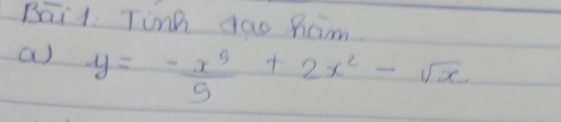 Bài 1. Tính đạo hàm
a) y = -x⁵/5 + 2x² - √x.